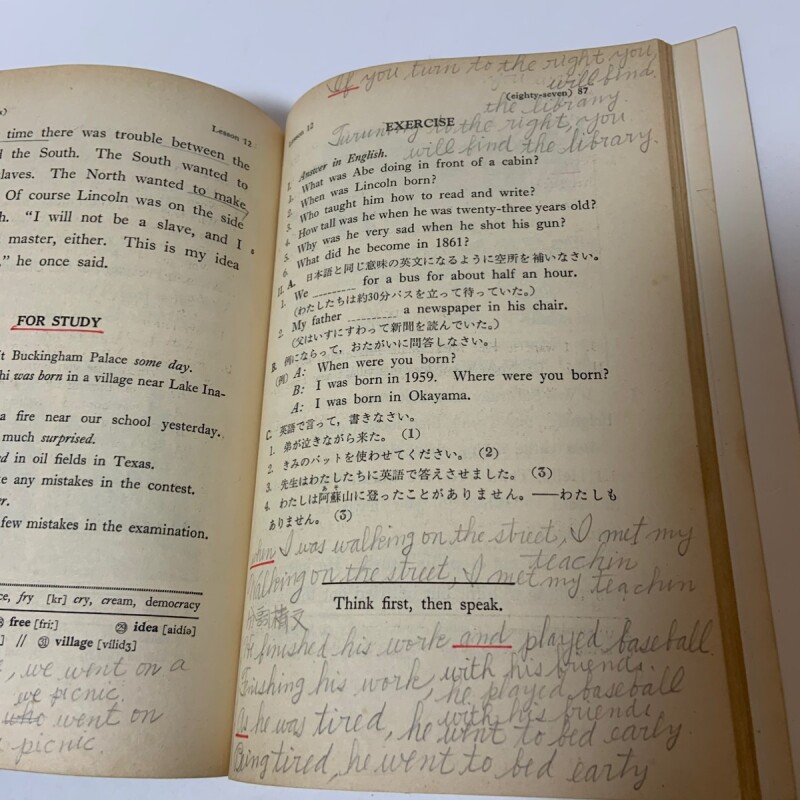 Lesson 12
time there was trouble between the
the South. The South wanted to
slaves. The North wanted to make
Of course Lincoln was on the side
"I will not be a slave, and I
master, either. This is my idea
," he once said.
FOR STUDY
Buckingham Palace some day.
was born in a village near Lake Ina-
a fire near our school yesterday.
much surprised.
in oil fields in Texas.
any mistakes in the contest.
few mistakes in the examination.
fry [kr] cry, cream, democracy
free [fri:] idea [aidiə]
// village [vilidʒ]
, we went on a
we picnic.
who went on
picnic.
If you turn to the right you
will find
the library.
(eighty-seven) 87
Lesson 12
EXERCISE
Turning to the right, you
will find the library.
I. Answer in English.
1. What was Abe doing in front of a cabin?
2. When was Lincoln born?
3. Who taught him how to read and write?
4. How tall was he when he was twenty-three years old?
5. Why was he very sad when he shot his gun?
6. What did he become in 1861?
II. A. 日本語と同じ意味の英文になるように空所を補いなさい。
1. We ________ for a bus for about half an hour.
(わたしたちは約30分バスを立って待っていた。)
2. My father ________ a newspaper in his chair.
(父はいすにすわって新聞を読んでいた。)
B. 例にならって,おたがいに問答しなさい。
(例) A: When were you born?
B: I was born in 1959. Where were you born?
A: I was born in Okayama.
C. 英語で言って,書きなさい。
1. 弟が泣きながら来た。 (1)
2. きみのバットを使わせてください。 (2)
3. 先生はわたしたちに英語で答えさせました。 (3)
4. わたしは阿蘇山に登ったことがありません。——わたしも
ありません。 (3)
When I was walking on the street, I met my
teachin
Walking on the street, I met my teachin
Think first, then speak.
分詞構文
He finished his work and played baseball
with his friends.
Finishing his work, he played baseball
with his friends.
As he was tired, he went to bed early.
Being tired, he went to bed early.